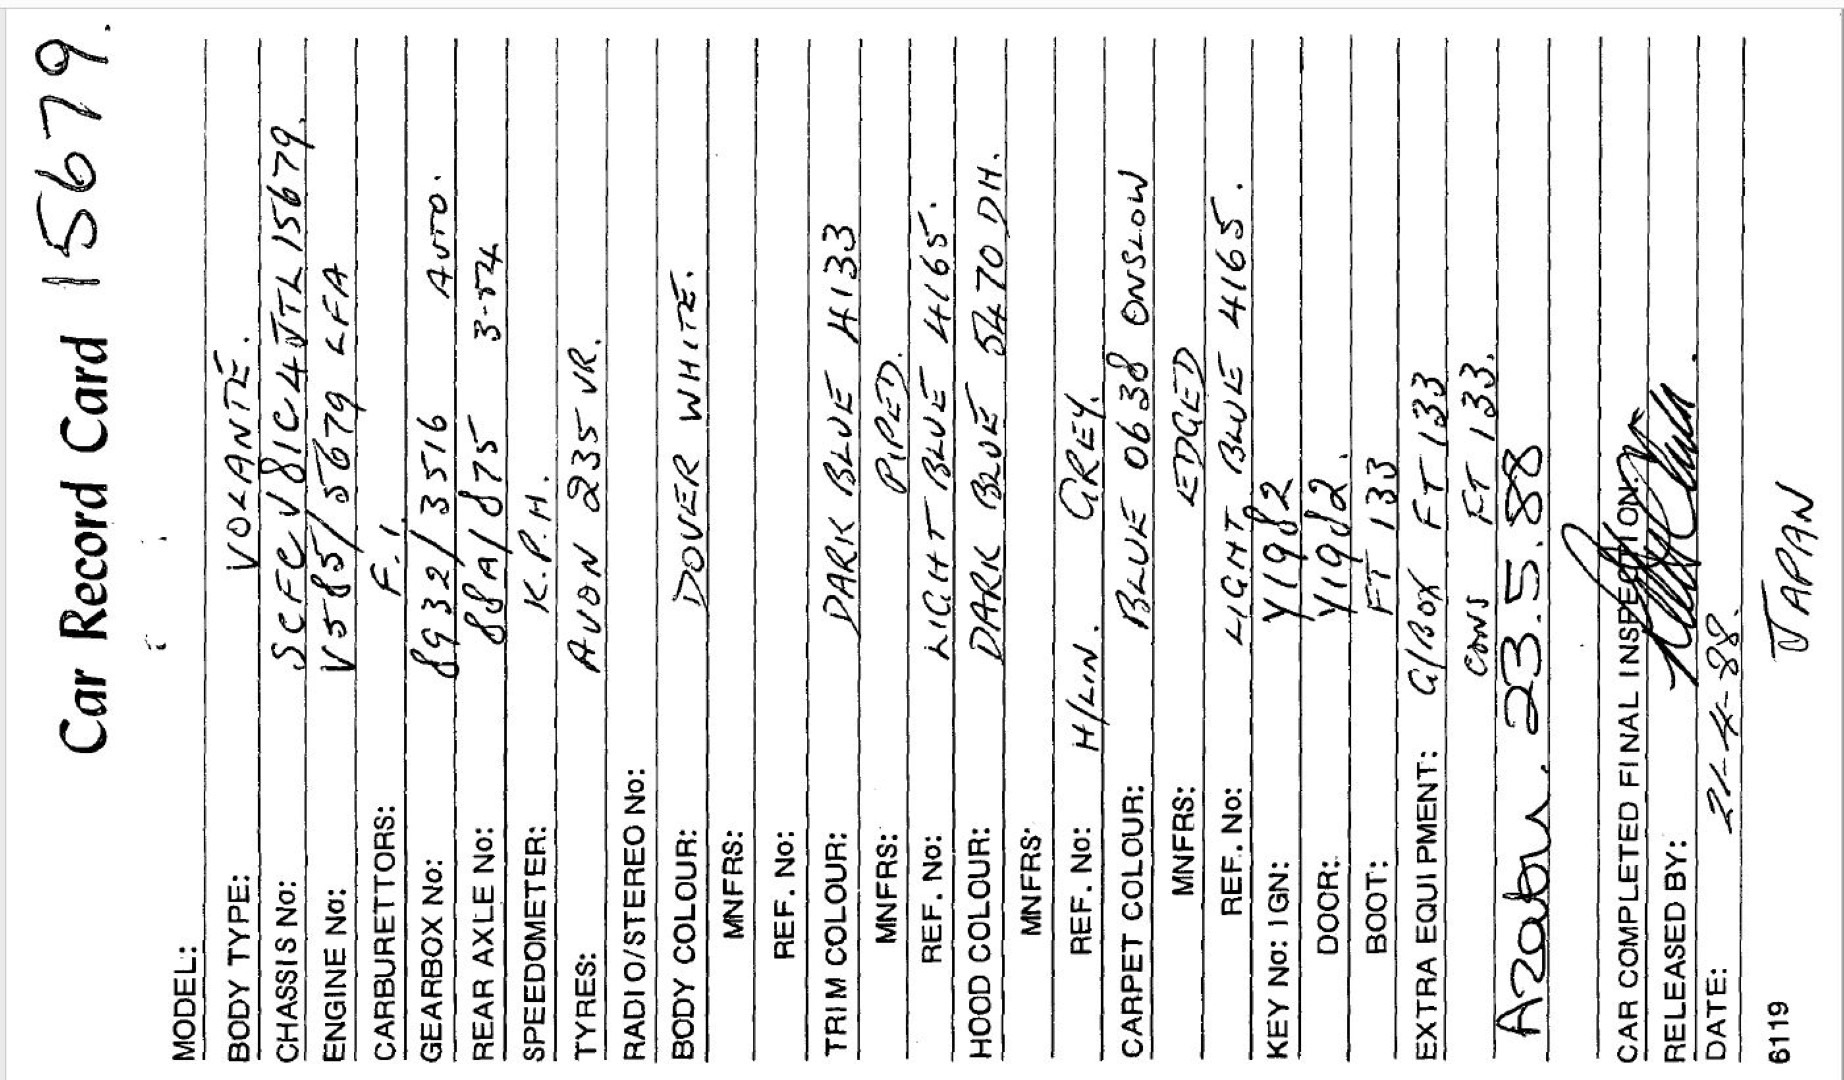 Car Record Card 15679.
MODEL:
BODY TYPE: VOLANTE.
CHASSIS No: SCFCV81C4JTL15679.
ENGINE No: V585/5679 LFA
CARBURETTORS: F.I.
GEARBOX No: 8932/3516 AUTO.
REAR AXLE No: 88A/875 3-54
SPEEDOMETER: K.P.H.
TYRES: AVON 235 VR.
RADIO/STEREO No:
BODY COLOUR: DOVER WHITE.
MNFRS:
REF. No:
TRIM COLOUR: DARK BLUE 4133
MNFRS: PIPED.
REF. No: LIGHT BLUE 4165.
HOOD COLOUR: DARK BLUE 5470 DH.
MNFRS:
REF. No: H/LIN. GREY.
CARPET COLOUR: BLUE 0638 ONSLOW
MNFRS: EDGED
REF. No: LIGHT BLUE 4165.
KEY No: IGN: Y1982
DOOR: Y1982.
BOOT: FT 133
EXTRA EQUIPMENT: G/BOX FT 133
CONS FT 133.
23.5.88
CAR COMPLETED FINAL INSPECTION.
RELEASED BY:
DATE: 21-4-88.
6119 JAPAN